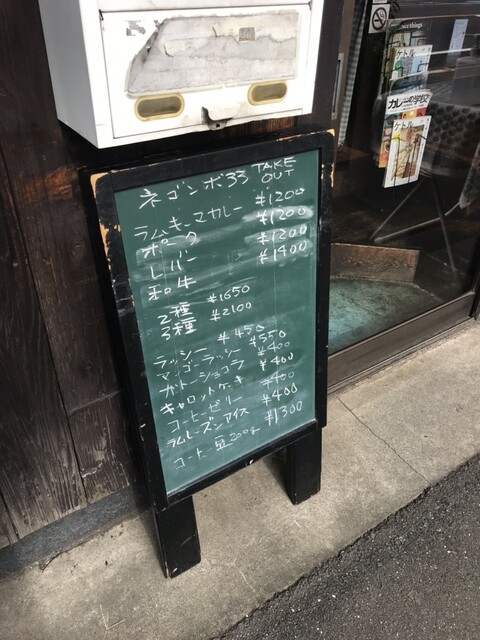 ネゴンボ33 TAKE OUT
ラムキーマカレー ¥1200
ポーク ¥1200
レバー ¥1200
和牛 ¥1400
2種 ¥1650
3種 ¥2100
ラッシー ¥450
マンゴーラッシー ¥550
ガトーショコラ ¥400
キャロットケーキ ¥400
コーヒーゼリー ¥400
ラムレーズンアイス ¥400
コーヒー豆200g ¥1300
ケトル
カレーの学校
ケトル